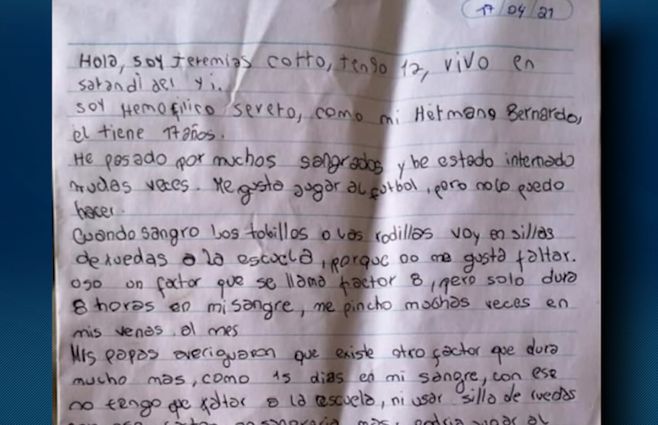 17/04/21
Hola, soy Jeremias Cotto, tengo 12, vivo en
sarandi del yi.
soy Hemofilico severo, como mi Hermano Bernardo,
el tiene 17 años.
He pasado por muchos sangrados y he estado internado
muchas veces. Me gusta jugar al futbol, pero no lo puedo
hacer.
Cuando sangro los tobillos o las rodillas voy en sillas
de ruedas a la escuela, porque no me gusta faltar.
uso un factor que se llama factor 8, pero solo dura
8 horas en mi sangre, me pincho muchas veces en
mis venas al mes
Mis papas averiguaron que existe otro factor que dura
mucho mas, como 15 dias en mi sangre, con ese
no tengo que faltar a la escuela, ni usar silla de ruedas